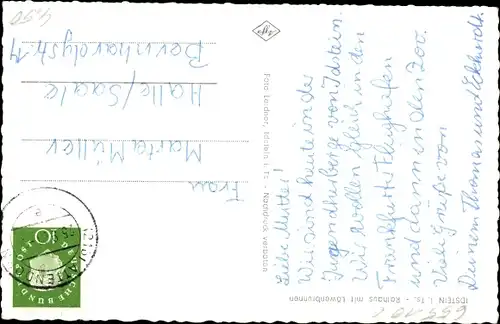 Liebe Mutter!
Wir sind heute in der
Jugendherberge von Idstein.
Wir wollen gleich in den
Frankfurter Flughafen
und dann in den Zoo.
Viele Grüße von
Deinem Thomas und Ekhardt.
Frau
Marta Müller
Halle/Saale
Bernhardystr. 14
Foto Leicher, Idstein i. Ts. - Nachdruck verboten
IDSTEIN i. Ts. - Rathaus mit Löwenbrunnen
Agfa
10
DEUTSCHE BUNDESPOST
4,50